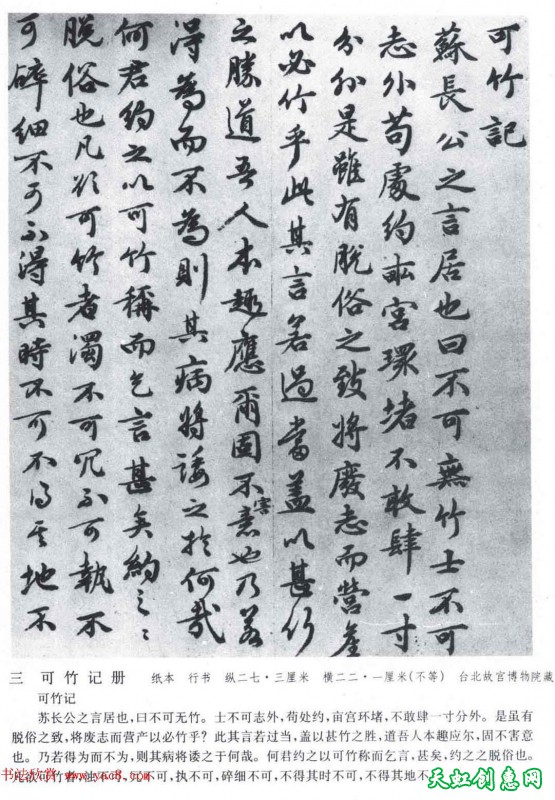 可竹記
蘇長公之言居也曰不可無竹士不可
志外苟處約畝宮環堵不敢肆一寸
分外是雖有脫俗之致將廢志而營產
以必竹乎此其言若過當蓋以甚竹
之勝道吾人本趣應爾固不害意也乃若
得為而不為則其病將諉之於何哉
何君約之以可竹稱而乞言甚矣約之之
脫俗也凡欲可竹者濁不可冗不可執不
可碎細不可不得其時不可不得其地不
三 可竹记册 纸本 行书 纵二七·三厘米 横二二·一厘米(不等) 台北故宫博物院藏
可竹记
苏长公之言居也,曰不可无竹。士不可志外,苟处约,亩宫环堵,不敢肆一寸分外。是虽有
脱俗之致,将废志而营产以必竹乎?此其言若过当,盖以甚竹之胜,道吾人本趣应尔,固不害意
也。乃若得为而不为,则其病将诿之于何哉。何君约之以可竹称而乞言,甚矣,约之之脱俗也。
凡欲可竹者,浊不可,冗不可,执不可,碎细不可,不得其时不可,不得其地不
书法欣赏 www.yac8.com
天虹创意网